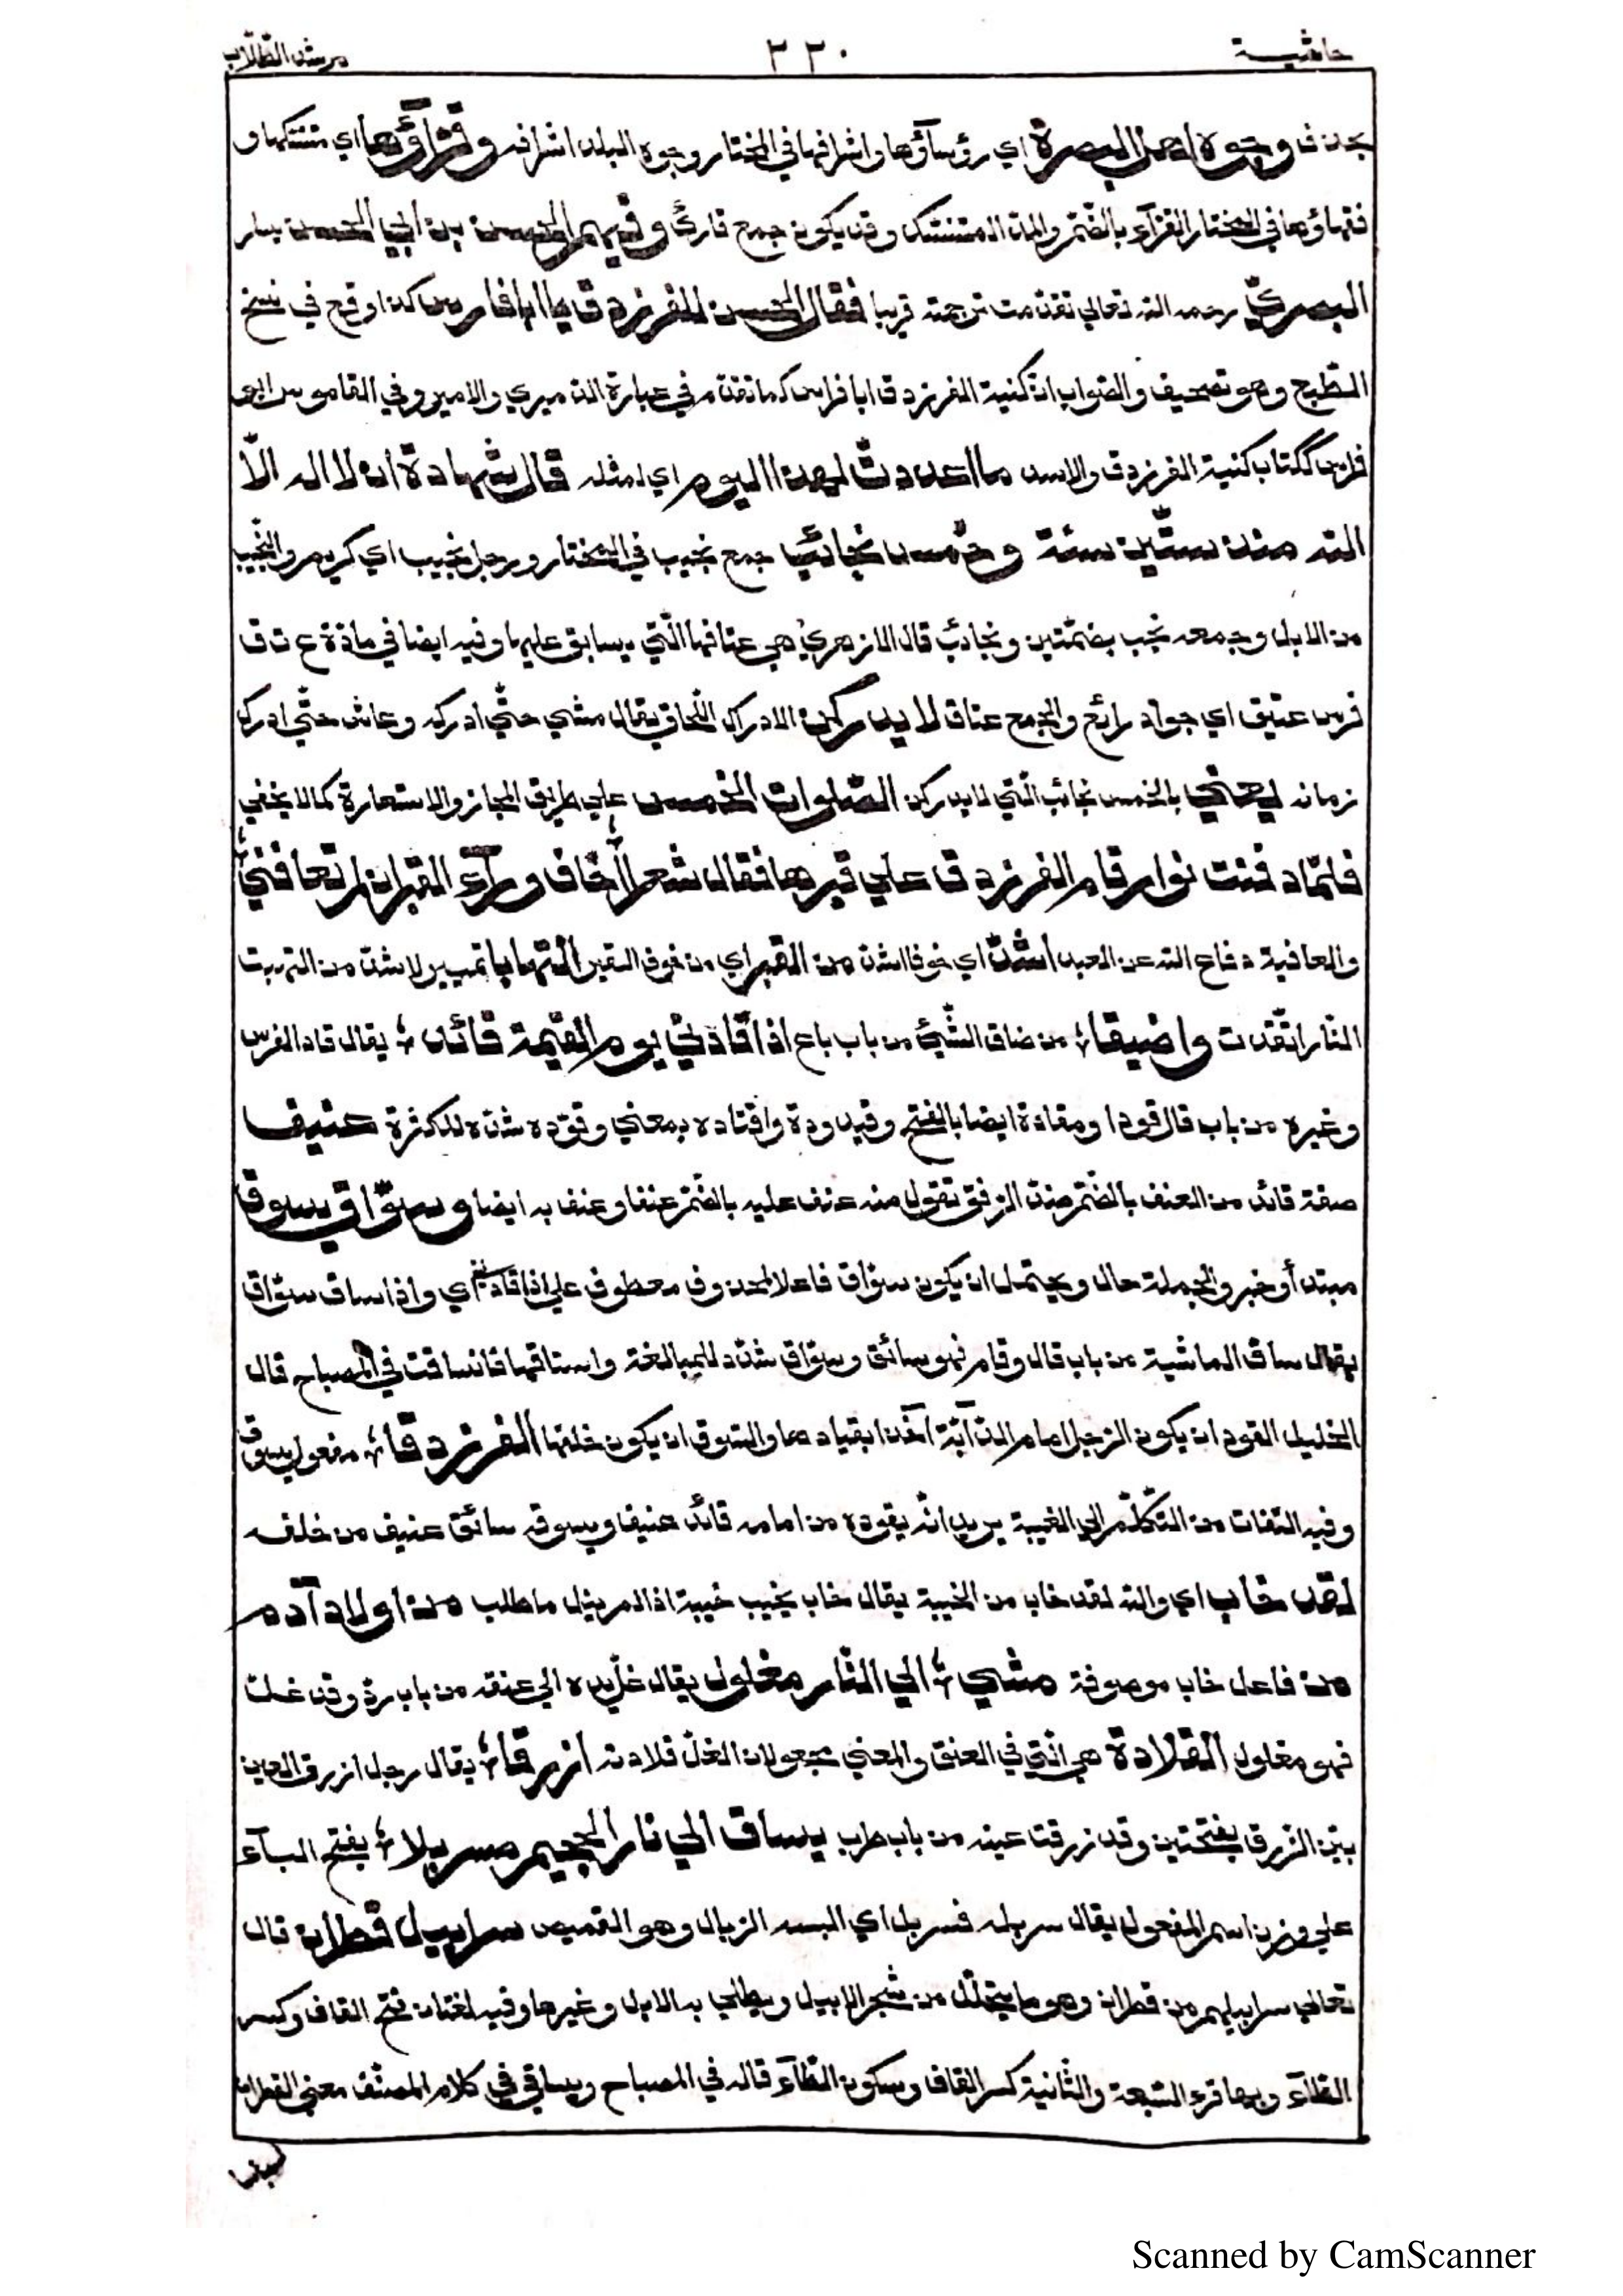 حاشية ٣٣٠ مرشد الطلاب
بحذف وجوه اهل البصرة اي رؤسآؤها واشرافها في المختار وجوه البلد اشرافه وقرآؤها اي متنسكها و
فقهاؤها في المختار القرآء بالضّمّ والمدّ المتنسّك وقد يكون جمع قارئ وفيهم الحسن بن ابي الحسن يسار
البصريّ رحمه الله تعالي تقدّمت ترجمته قريبا فقال الحسن للفرزدق يا ابا فارس كذا وقع في نسخ
الطّبع وهو تصحيف والصّواب انّ كنية الفرزدق ابا فراس كما تقدّم في عبارة الدّميري والامير وفي القاموس ابو
فراس ككتاب كنية الفرزدق والاسد ما اعددت لهذا اليوم اي لمثله قال شهادة ان لا اله الّا
الله منذ ستّين سنة وخمس نجائب جمع نجيب في المختار ورجل نجيب اي كريم والنّجيب
من الابل وجمعه نجب بضمّتين ونجائب قال الازهريّ هي عتاقها الّتي يسابق عليها وفيه ايضا في مادّة ع ت ق
فرس عتيق اي جواد رائع والجمع عتاق لا يدركن الادراك اللّحاق يقال مشي حتّي ادركه وعاش حتّي ادرك
زمانه يعني بالخمس نجائب الّتي لا يدركن الصّلوات الخمس علي طريق المجاز والاستعارة كما لا يخفي
فلمّا دفنت نوار قام الفرزدق علي قبرها فقال شعرا أخاف ورآء القبر ان لم تعافني ؛
والعافية دفاع الله عن العبد اشدّ اي خوفا اشدّ من القبر اي من خوف القبر التهابا تمييز لاشدّ من التهبت
النّار اتّقدت واضيقا ؛ من ضاق الشّيئ من باب باع اذا قادني يوم القيمة قائد ؛ يقال قاد الفرس
وغيره من باب قال قودا ومقادة ايضا بالفتح وقيدودة واقتاده بمعني وقوّده شدّد للكثرة عنيف
صفة قائد من العنف بالضّمّ ضدّ الرّفق تقول منه عنف عليه بالضّمّ عنفا وعنف به ايضا وسوّاق يسوق
مبتدأ وخبر والجملة حال ويحتمل ان يكون سوّاق فاعلا لمحذوف معطوف علي اذا قادني اي واذا ساق سوّاق
يقال ساق الماشية من باب قال وقام فهو سائق وسوّاق شدّد للمبالغة واستاقها فانساقت في المصباح قال
الخليل القود ان يكون الرّجل امام الدّآبّة آخذا بقيادها والسّوق ان يكون خلفها الفرزدقا ؛ مفعول يسوق
وفيه التفات من التّكلّم الي الغيبة يريد انّه يقوده من امامه قائد عنيف ويسوقه سائق عنيف من خلفه
لقد خاب اي والله لقد خاب من الخيبة يقال خاب يخيب خيبة اذا لم ينل ما طلب من اولاد آدم
من فاعل خاب موصوفة مشي ؛ الي النّار مغلول يقال غلّ يده الي عنقه من باب ردّ وقد غلّت
فهو مغلول القلادة هي الّتي في العنق والمعني مجعول ان الغلّ قلادته ازرقا ؛ يقال رجل ازرق العين
بيّن الزّرق بفتحتين وقد زرقت عينه من باب طرب يساق الي نار الجحيم مسربلا ؛ بفتح البآء
علي وزن اسم المفعول يقال سربله فتسربل اي البسه السّربال وهو القميص سرابيل قطران قال
تعالي سرابيلهم من قطران وهو ما يتحلّل من شجر الابهل ويطلي به الابل وغيرها وفيه لغتان فتح القاف وكسر
الطّآء وبها قرء السّبعة والثّانية كسر القاف وسكون الطّآء قاله في المصباح ويساق في كلام المصنّف معني القطران
Scanned by CamScanner